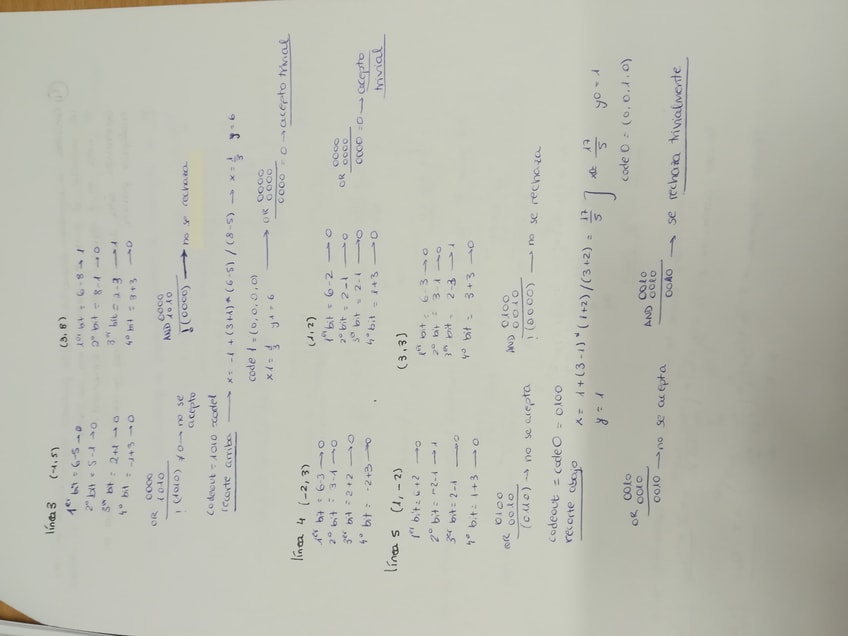 línea 3 (-1,5) (3,8)
1er bit = 6-5 → 0
2º bit = 5-1 → 0
3er bit = 2+1 → 0
4º bit = -1+3 → 0
1er bit = 6-8 → 1
2º bit = 8-1 → 0
3er bit = 2-3 → 1
4º bit = 3+3 → 0
OR 0000
1010
! (1010) ≠ 0 → no se acepto
AND 0000
1010
! (0000) → no se rechaza
codeout = 1010
recorte arriba → x = -1 + (3+1)*(6-5)/(8-5) → x = 1/3 y = 6
code 1 = (0,0,0,0)
x1 = 1/3 y1 = 6 → OR 0000
0000
0000 = 0 → acepto trivial
línea 4 (-2, 3) (1,2)
1er bit = 6-3 → 0
2º bit = 3-1 → 0
3er bit = 2+2 → 0
4º bit = -2+3 → 0
1er bit = 6-2 → 0
2º bit = 2-1 → 0
3º bit = 2-1 → 0
4º bit = 1+3 → 0
OR 0000
0000
0000 = 0 → acepto trivial
línea 5 (1, -2) (3,3)
1er bit = 6+2 → 0
2º bit = -2-1 → 1
3er bit = 2-1 → 0
4º bit = 1+3 → 0
1er bit = 6-3 → 0
2º bit = 3-1 → 0
bit = 2-3 → 1
4º bit = 3+3 → 0
OR 0100
0010
(0110) → no se acepta
AND 0100
0010
! (0000) → no se rechaza
codeout = code0 = 0100
recorte abajo x = 1 + (3-1) * (1+2) / (3+2) = 17/5
y = 1
17/5 y0 = 1
code 0 = (0,0,1,0)
OR 0010
0010
0010 → no se acepta
AND 0010
0010
0010 → se rechaza trivialmente